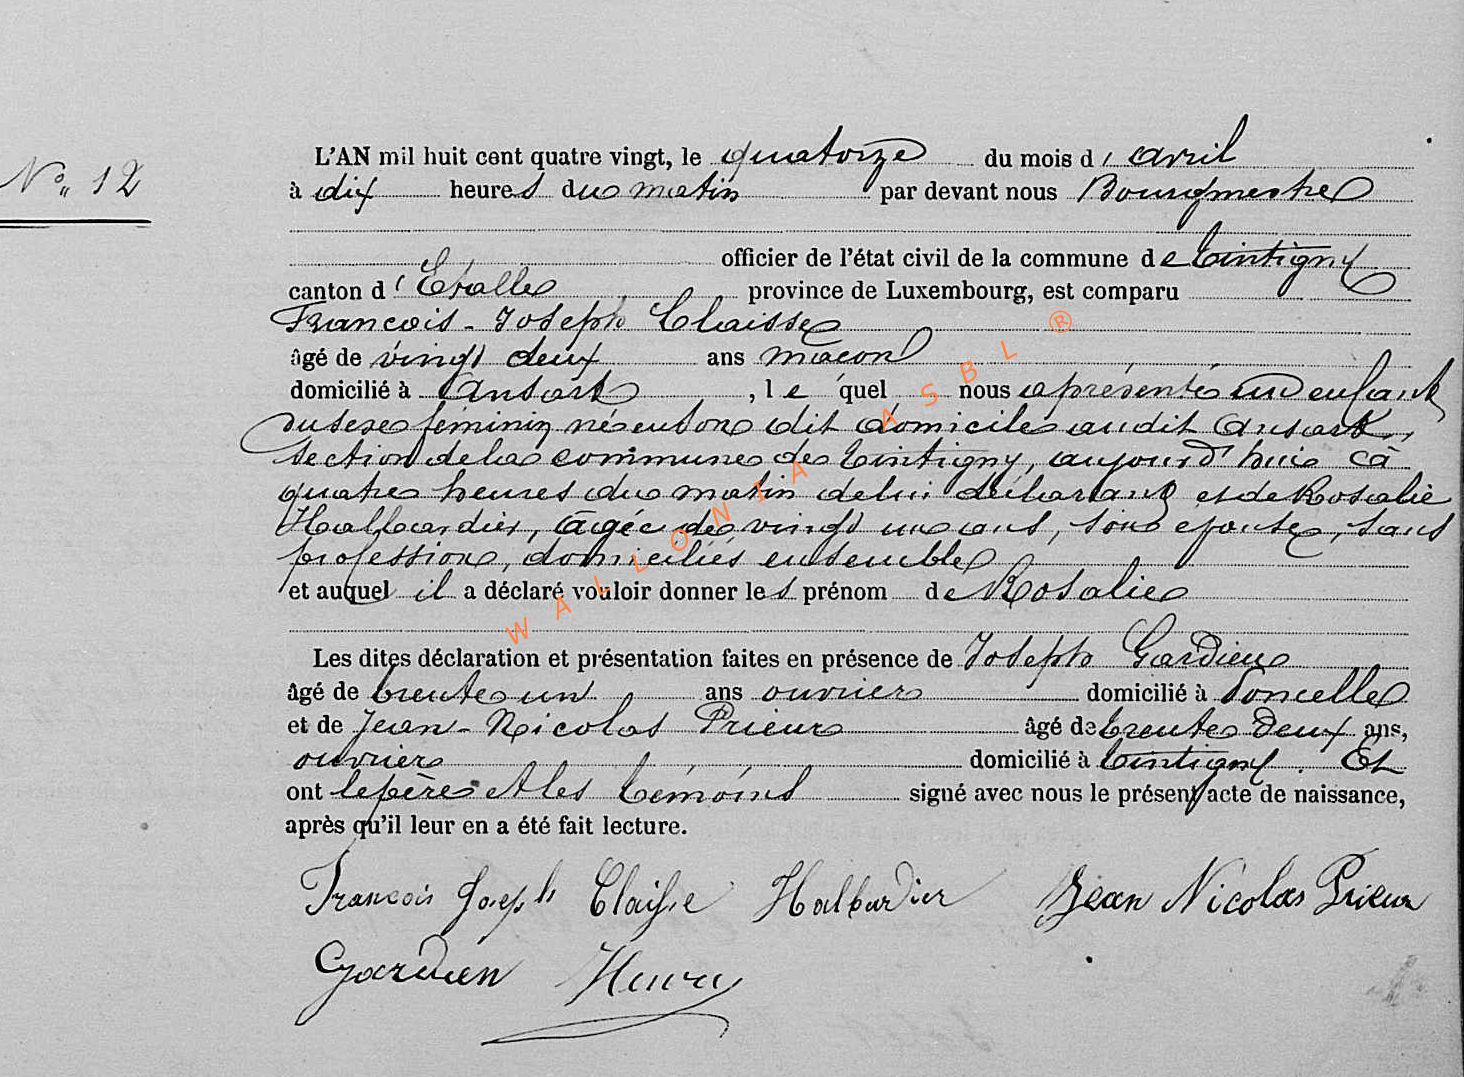 No. 12
L'AN mil huit cent quatre vingt, le quatorze du mois d' avril
à dix heures du matin par devant nous Bourgmestre
officier de l'état civil de la commune de Tintigny
canton d'Etalle province de Luxembourg, est comparu
François-Joseph Claisse
âgé de vingt deux ans maçon
domicilié à Ansart, lequel nous a présenté un enfant
du sexe féminin né en son dit domicile audit Ansart,
section de la commune de Tintigny, aujourd'hui à
quatre heures du matin de lui déclarant et de Rosalie
Halbardier, âgée de vingt un ans, son épouse, sans
profession, domiciliés ensemble
et auquel il a déclaré vouloir donner les prénom de Rosalie
Les dites déclaration et présentation faites en présence de Joseph Gardien
âgé de trente un ans ouvrier domicilié à Poncelle
et de Jean-Nicolas Prieur âgé de trente deux ans,
ouvrier domicilié à Tintigny. Et
ont le père et les témoins signé avec nous le présent acte de naissance,
après qu'il leur en a été fait lecture.
François Joseph Claisse Halbardier Jean Nicolas Prieur
Gardien Henry
WALLONIA ASBL ®